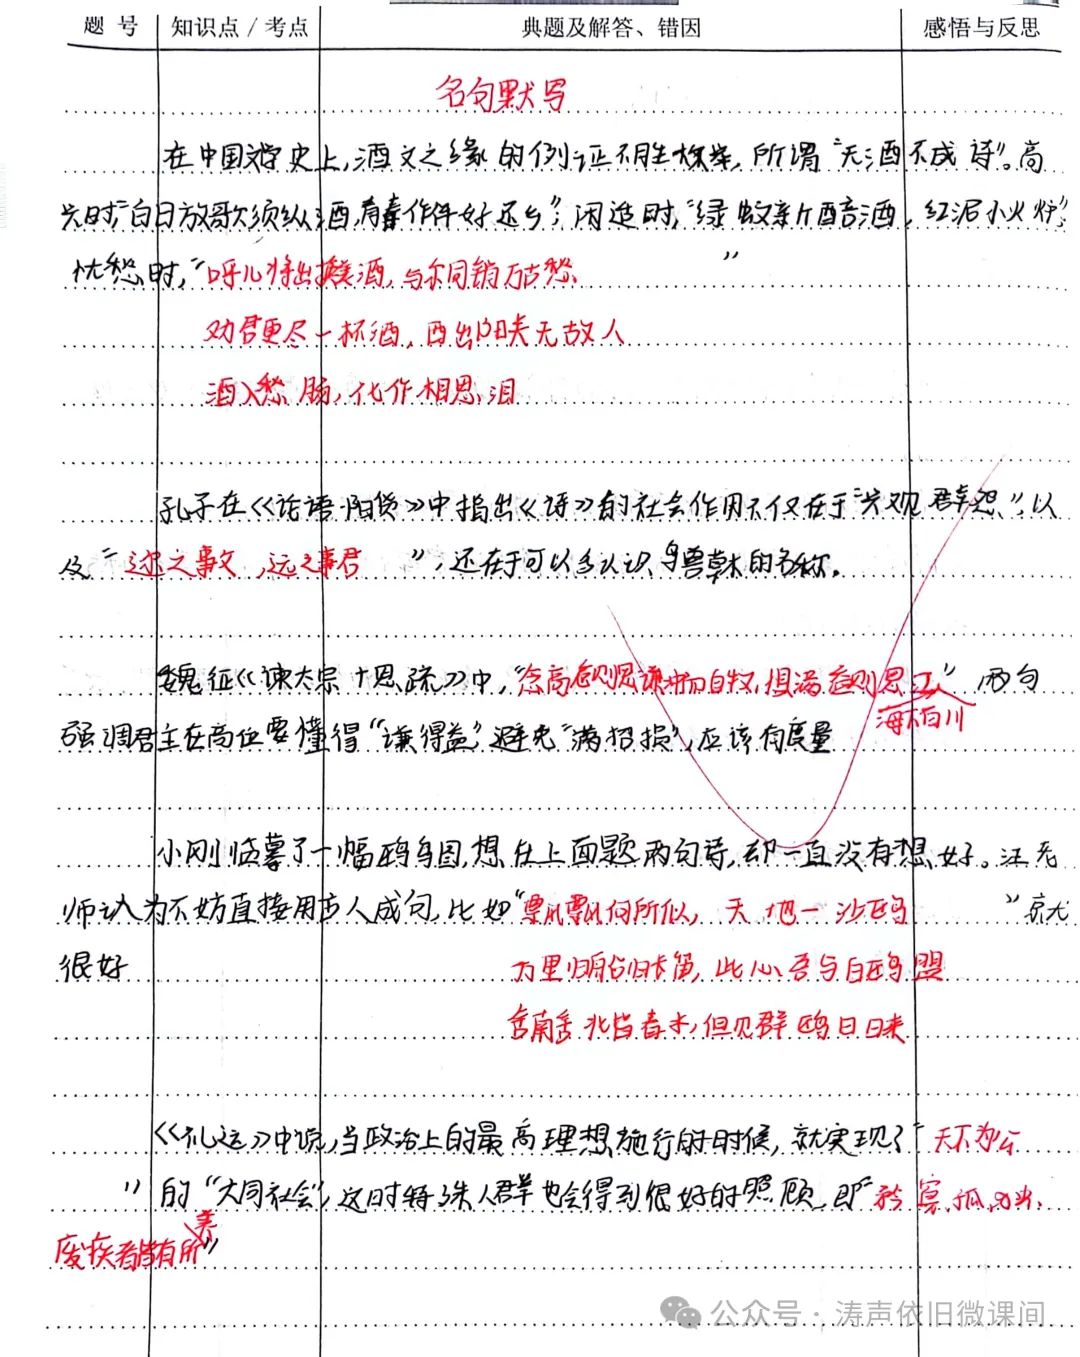 题 号 知识点 / 考点 典题及解答、错因 感悟与反思
名句默写
在中国文学史上,酒文之缘的例证不胜枚举,所谓“无酒不成诗”。高
兴时“白日放歌须纵酒,青春作伴好还乡”;闲适时,“绿蚁新醅酒,红泥小火炉”;
忧愁时,“呼儿将出换美酒,与尔同销万古愁 ”
劝君更尽一杯酒,西出阳关无故人
酒入愁肠,化作相思泪
孔子在《论语·阳货》中指出《诗》的社会作用不仅在于“兴观群怨”,以
及“迩之事父,远之事君 ”,还在于可以多认识鸟兽草木的名称。
魏征《谏太宗十思疏》中,“念高危则思谦冲而自牧,惧满溢则思江” 两句
海下百川
强调君主在高位要懂得“谦得益”避免“满招损”,应该有度量
小刚临摹了一幅鸥鸟图,想在上面题两句诗,却一直没有想好。汪老
师认为不妨直接用古人成句,比如“飘飘何所似,天地一沙鸥 ”就
很好 万里归船弄长笛,此心吾与白鸥盟
舍南舍北皆春水,但见群鸥日日来
《礼运》中说,当政治上的最高理想施行的时候,就实现了“天下为公
”的“大同社会”,这时特殊人群也会得到很好的照顾,即“矜、寡、孤、独、
废疾者皆有所养”
公众号 · 涛声依旧微课间